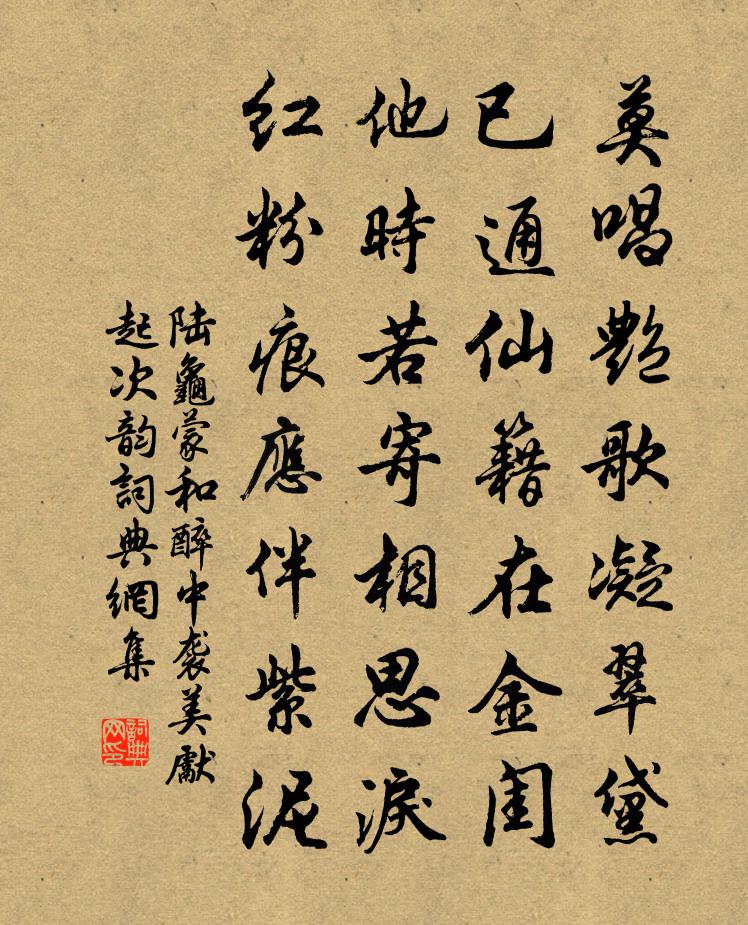 莫唱艶歌凝翠黛
已通仙籍在金闺
他時若寄相思淚
红粉痕應伴紫泥
陆龜蒙和醉中袭美獻
起次韵詞典網集
詞典网印